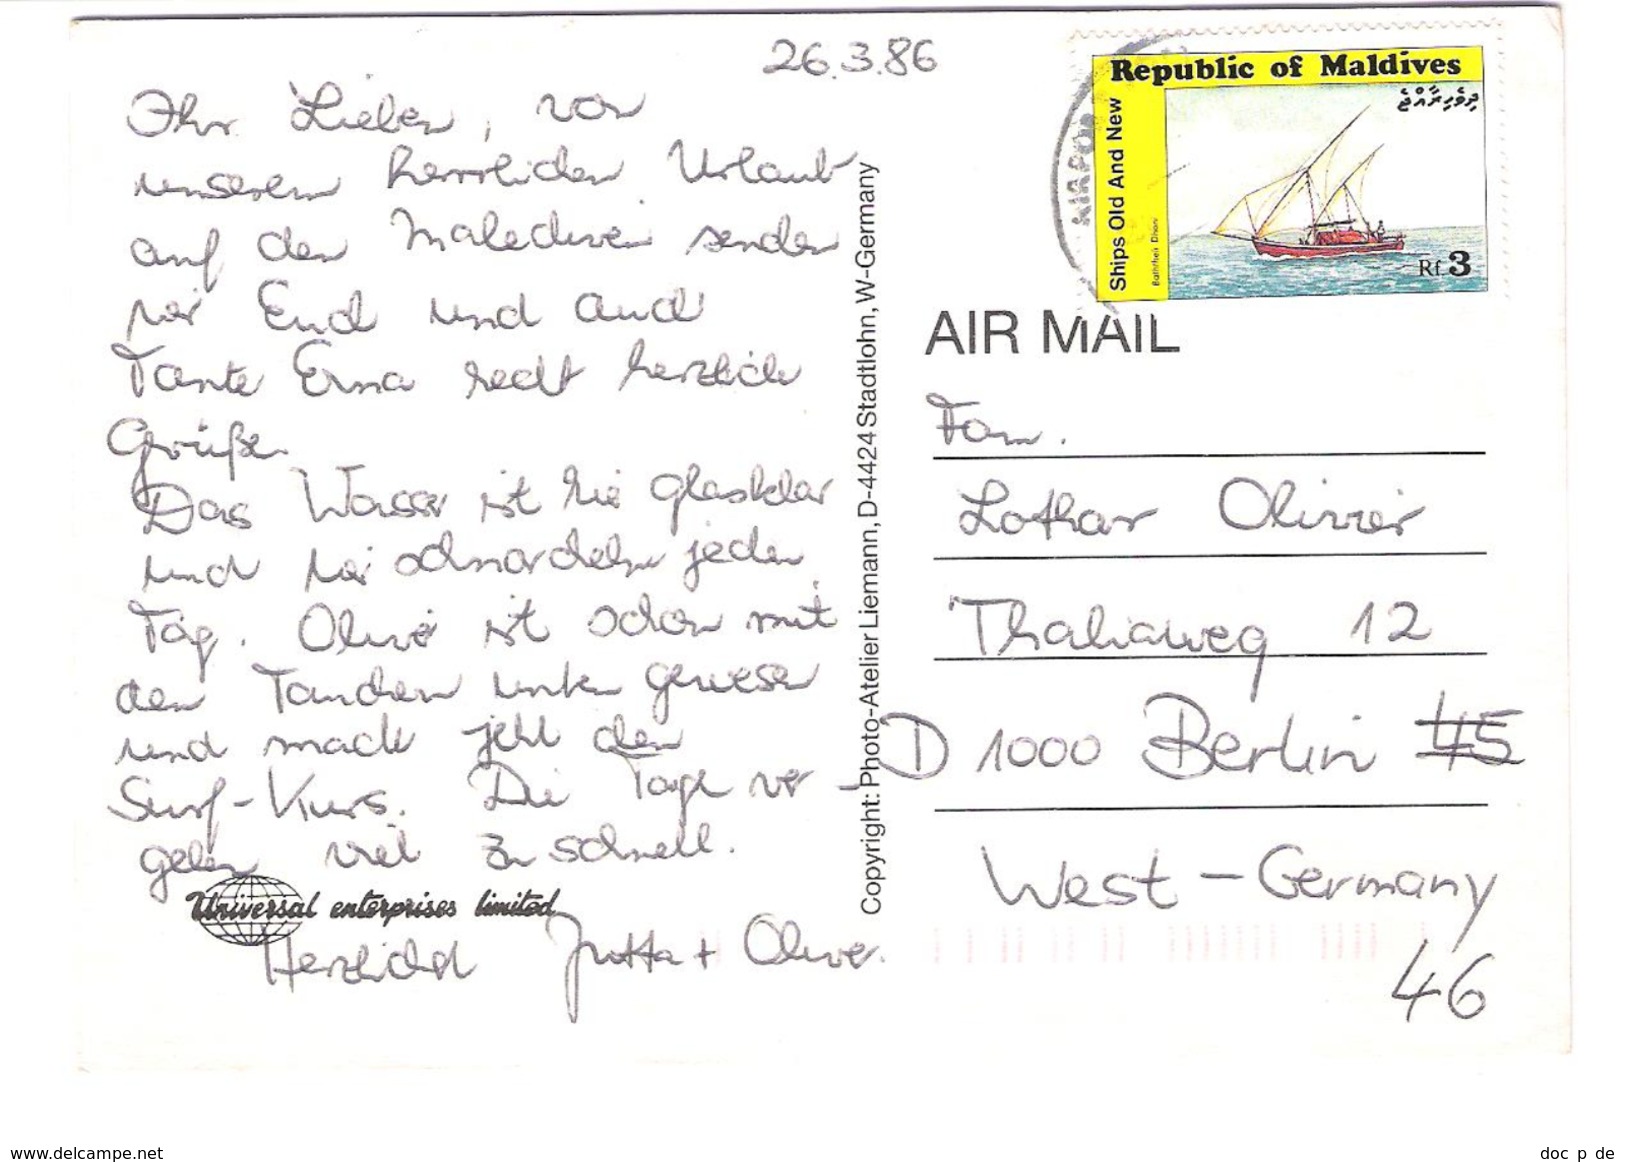 26.3.86
Ihr Lieben, von
unserem herrlichen Urlaub
auf den Malediven senden
wir Euch und auch
Tante Erna recht herzliche
Grüße.
Das Wasser ist hie glasklar
und wir schnorcheln jeden
Tag. Oliver ist schon mit
den Tauchern unten gewesen
und macht jetzt den
Surf-Kurs. Die Tage ver-
gehen viel zu schnell.
Universal enterprises limited
Herzlichst Jutta + Oliver.
Copyright: Photo-Atelier Liemann, D-4424 Stadtlohn, W-Germany
Republic of Maldives
ދިވެހިރާއްޖެ
Ships Old And New
Baththeli Dhoni
Rf.3
AIR MAIL
Fam.
Lothar Olivier
Thaliaweg 12
D 1000 Berlin 45
West-Germany
46
www.delcampe.net
doc_p_de